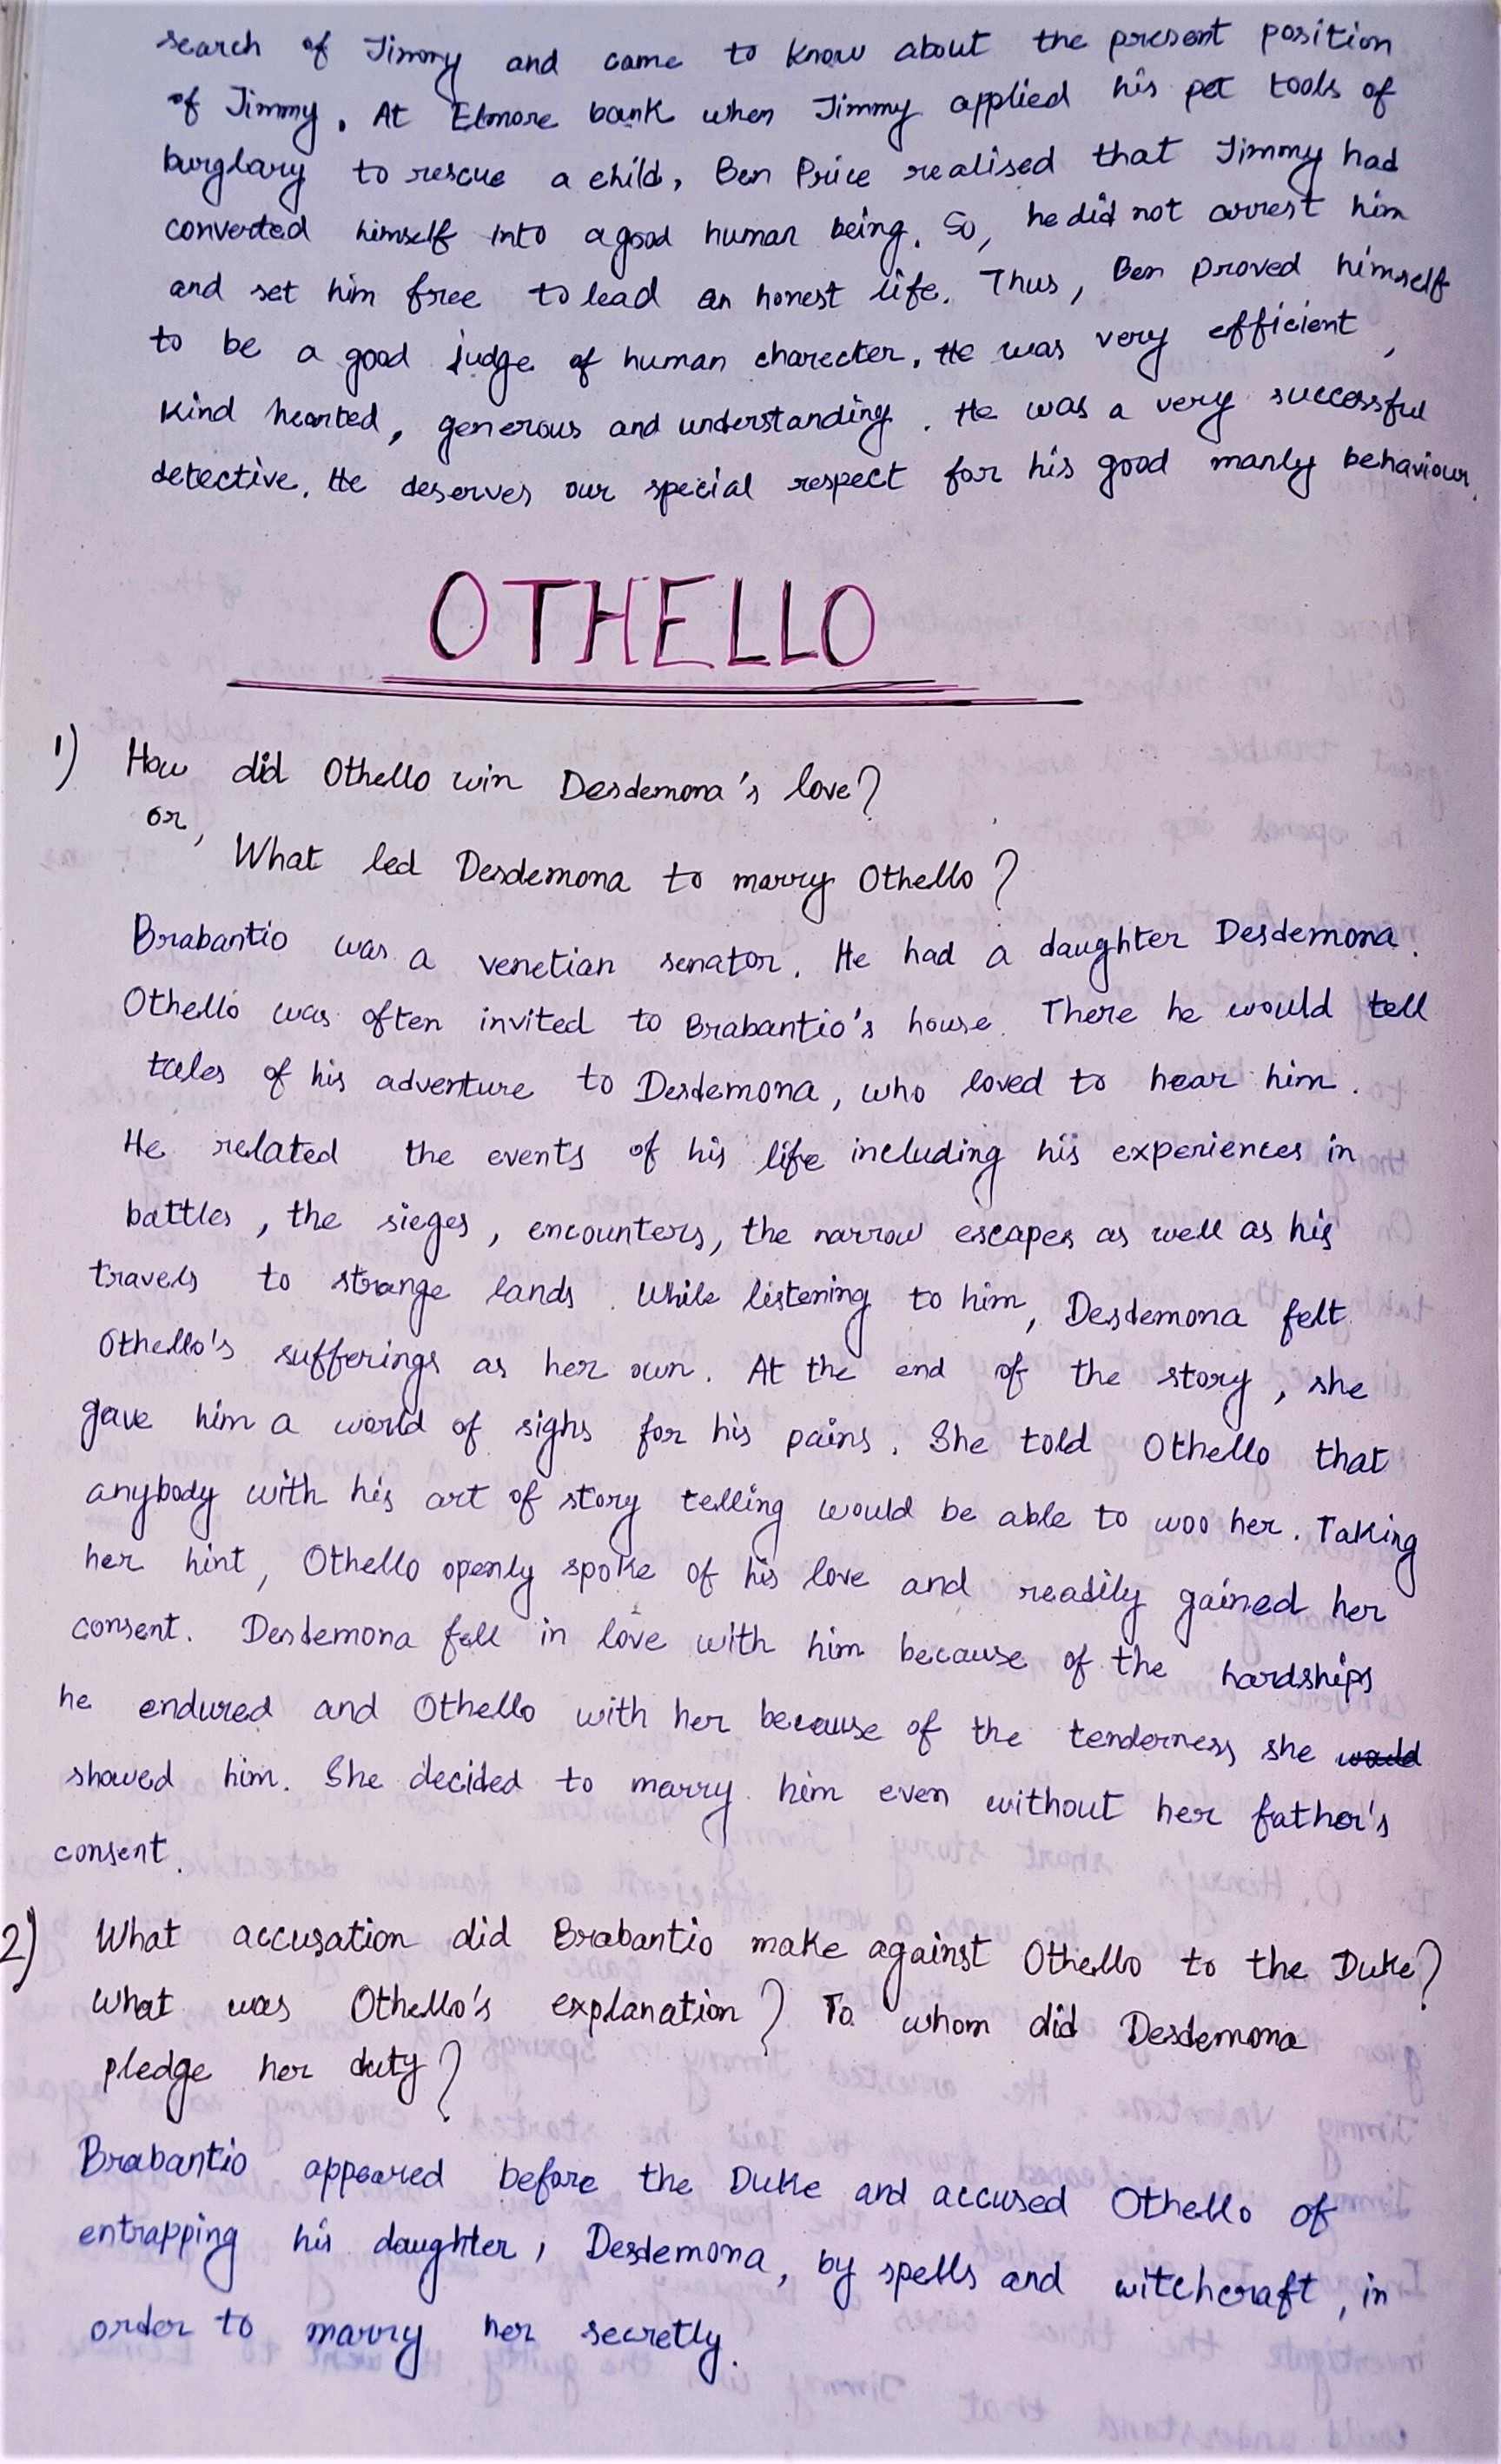 search of Jimmy and came to know about the present position
of Jimmy. At Elmore bank when Jimmy applied his pet tools of
burglary to rescue a child, Ben Price realised that Jimmy had
converted himself into a good human being. So, he did not arrest him
and set him free to lead an honest life. Thus, Ben proved himself
to be a good judge of human charecter. He was very efficient,
kind hearted, generous and understanding. He was a very successful
detective. He deserves our special respect for his good manly behaviour.
OTHELLO
1) How did Othello win Desdemona's love?
or,
What led Desdemona to marry Othello?
Brabantio was a venetian senator. He had a daughter Desdemona.
Othello was often invited to Brabantio's house. There he would tell
tales of his adventure to Desdemona, who loved to hear him.
He related the events of his life including his experiences in
battles, the sieges, encounters, the narrow escapes as well as his
travels to strange lands. While listening to him, Desdemona felt
Othello's sufferings as her own. At the end of the story, she
gave him a world of sighs for his pains. She told Othello that
anybody with his art of story telling would be able to woo her. Taking
her hint, Othello openly spoke of his love and readily gained her
consent. Desdemona fell in love with him because of the hardships
he endured and Othello with her because of the tenderness she would
showed him. She decided to marry him even without her father's
consent.
2) What accusation did Brabantio make against Othello to the Duke?
What was Othello's explanation? To whom did Desdemona
pledge her duty?
Brabantio appeared before the Duke and accused Othello of
entrapping his daughter, Desdemona, by spells and witchcraft, in
order to marry her secretly.